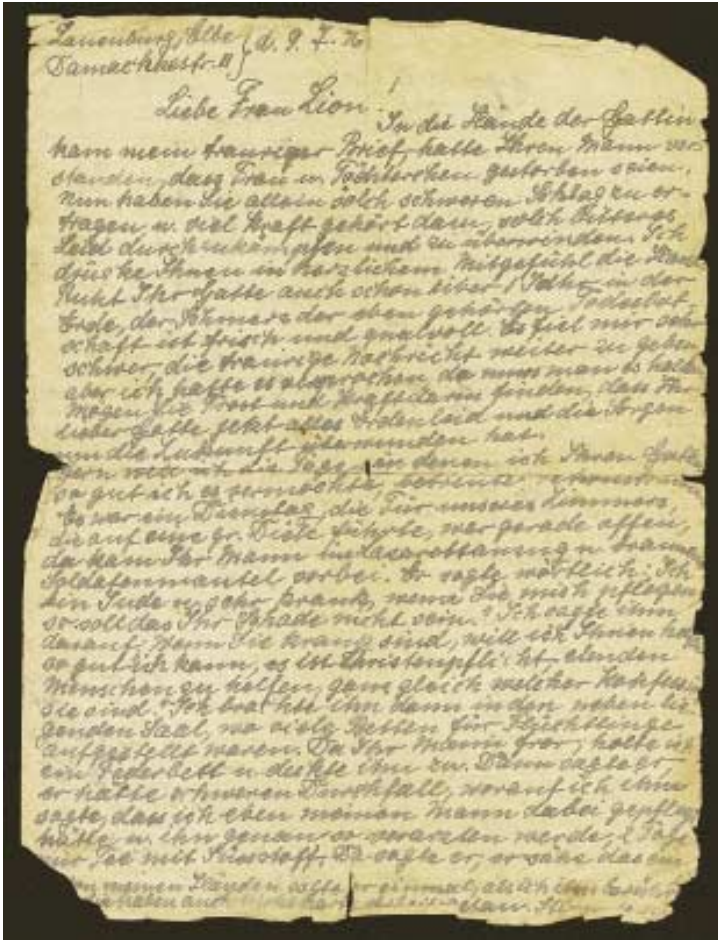 Lauenburg/Elbe } d. 9. 7. 46
Damachkestr. 11
Liebe Frau Lion!
In die Hände der Gattin
kam mein trauriger Brief, hatte Ihren Mann ver-
standen, dass Frau u. Töchterchen gestorben seien.
Nun haben Sie allein solch schweren Schlag zu er-
tragen u. viel Kraft gehört dazu, solch bitteres
Leid durchzukämpfen und zu überwinden. Ich
drücke Ihnen in herzlichem Mitgefühl die Hand
Ruht Ihr Gatte auch schon über 1 Jahr in der
Erde, der Schmerz der eben gehörten Todesbot-
schaft ist frisch und qualvoll. Es fiel mir sehr
schwer, die traurige Nachricht weiter zu geben
aber ich hatte es versprochen, da muss man es halten
Mögen Sie Trost und Kraft darin finden, dass Ihr
lieber Gatte jetzt alles Erdenleid und die Sorgen
um die Zukunft überwunden hat.
Gern will ich die Tage, in denen ich Ihren Gatten
so gut ich es vermochte betreute
Es war ein Dienstag, die Tür unseres Zimmers,
die auf eine gr. Diele führte, war gerade offen,
da kam Ihr Mann im Lazarettanzug u. braunen
Soldatenmantel vorbei. Er sagte wörtlich: Ich
bin Jude u. sehr krank, wenn Sie mich pflegen
so soll das Ihr Schade nicht sein." Ich sagte ihm
darauf, Wenn Sie krank sind, will ich Ihnen helfen
so gut ich kann, es ist Christenpflicht, elenden
Menschen zu helfen, ganz gleich welcher Konfession
sie sind." Ich brachte ihn dann in den neben lie-
genden Saal, wo viele Betten für Flüchtlinge
aufgestellt waren. Da Ihr Mann fror, holte ich
ein Federbett u. deckte ihn zu. Dann sagte er,
er hätte schweren Durchfall, worauf ich ihm
sagte, dass ich eben meinen Mann dabei gepflegt
hätte u. ihn genau so verarzten werde, 2 Tage
nur Tee mit Süsstoff. Da sagte er, er sähe das
meinen Händen, sagte er einmal, als ich ihm
haben auch